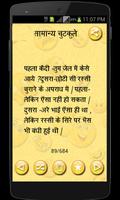 11:07 PM
सामान्य चुटकुले
पहला कैदी -तुम जेल में कैसे
आये -दूसरा-छोटी सी रस्सी
चुराने के अपराध में |
पहला-लेकिन ऐसा नही हो सकता
| दूसरा -भाई ऐसा ही हुआ था |
रस्सी के सिरे पर भैस
भी बंधी थी |
89/684